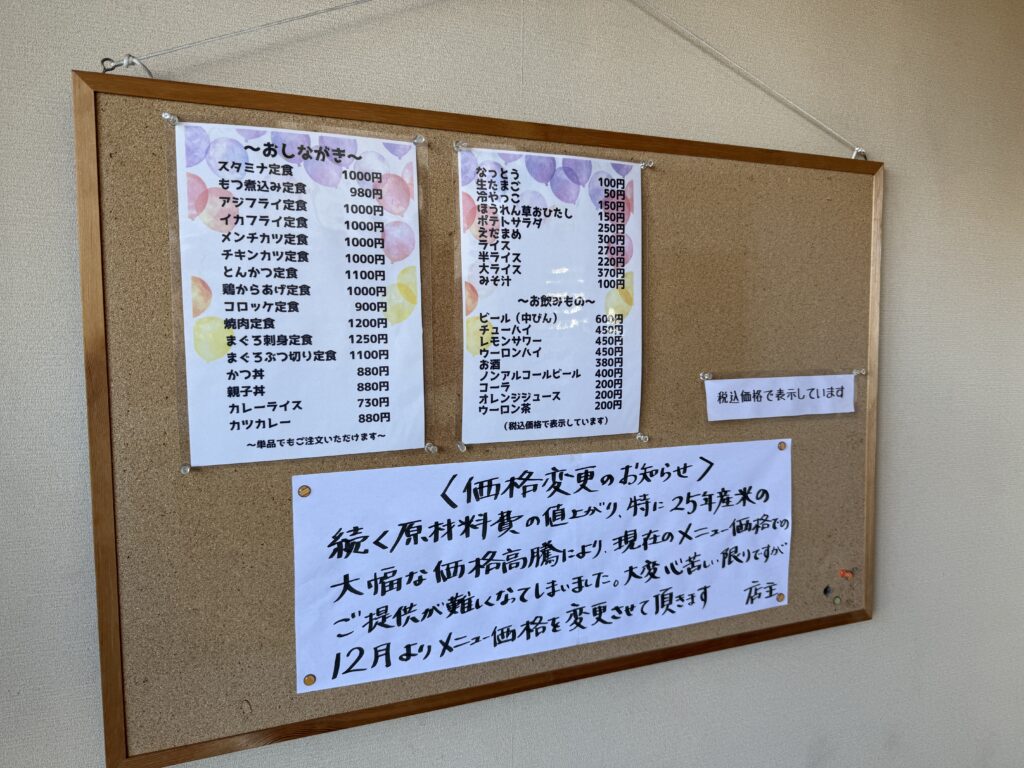 ～おしながき～
スタミナ定食 1000円
もつ煮込み定食 980円
アジフライ定食 1000円
イカフライ定食 1000円
メンチカツ定食 1000円
チキンカツ定食 1000円
とんかつ定食 1100円
鶏からあげ定食 1000円
コロッケ定食 900円
焼肉定食 1200円
まぐろ刺身定食 1250円
まぐろぶつ切り定食 1100円
かつ丼 880円
親子丼 880円
カレーライス 730円
カツカレー 880円
～単品でもご注文いただけます～
なっとう 100円
生たまご 50円
冷やっこ 150円
ほうれん草おひたし 150円
ポテトサラダ 250円
えだまめ 300円
ライス 270円
半ライス 220円
大ライス 370円
みそ汁 100円
～お飲みもの～
ビール（中びん） 600円
チューハイ 450円
レモンサワー 450円
ウーロンハイ 450円
お酒 380円
ノンアルコールビール 400円
コーラ 200円
オレンジジュース 200円
ウーロン茶 200円
（税込価格で表示しています）
税込価格で表示しています
〈価格変更のお知らせ〉
続く原材料費の値上がり、特に25年産米の
大幅な価格高騰により、現在のメニュー価格での
ご提供が難しくなってしまいました。大変心苦しい限りですが
12月よりメニュー価格を変更させて頂きます 店主